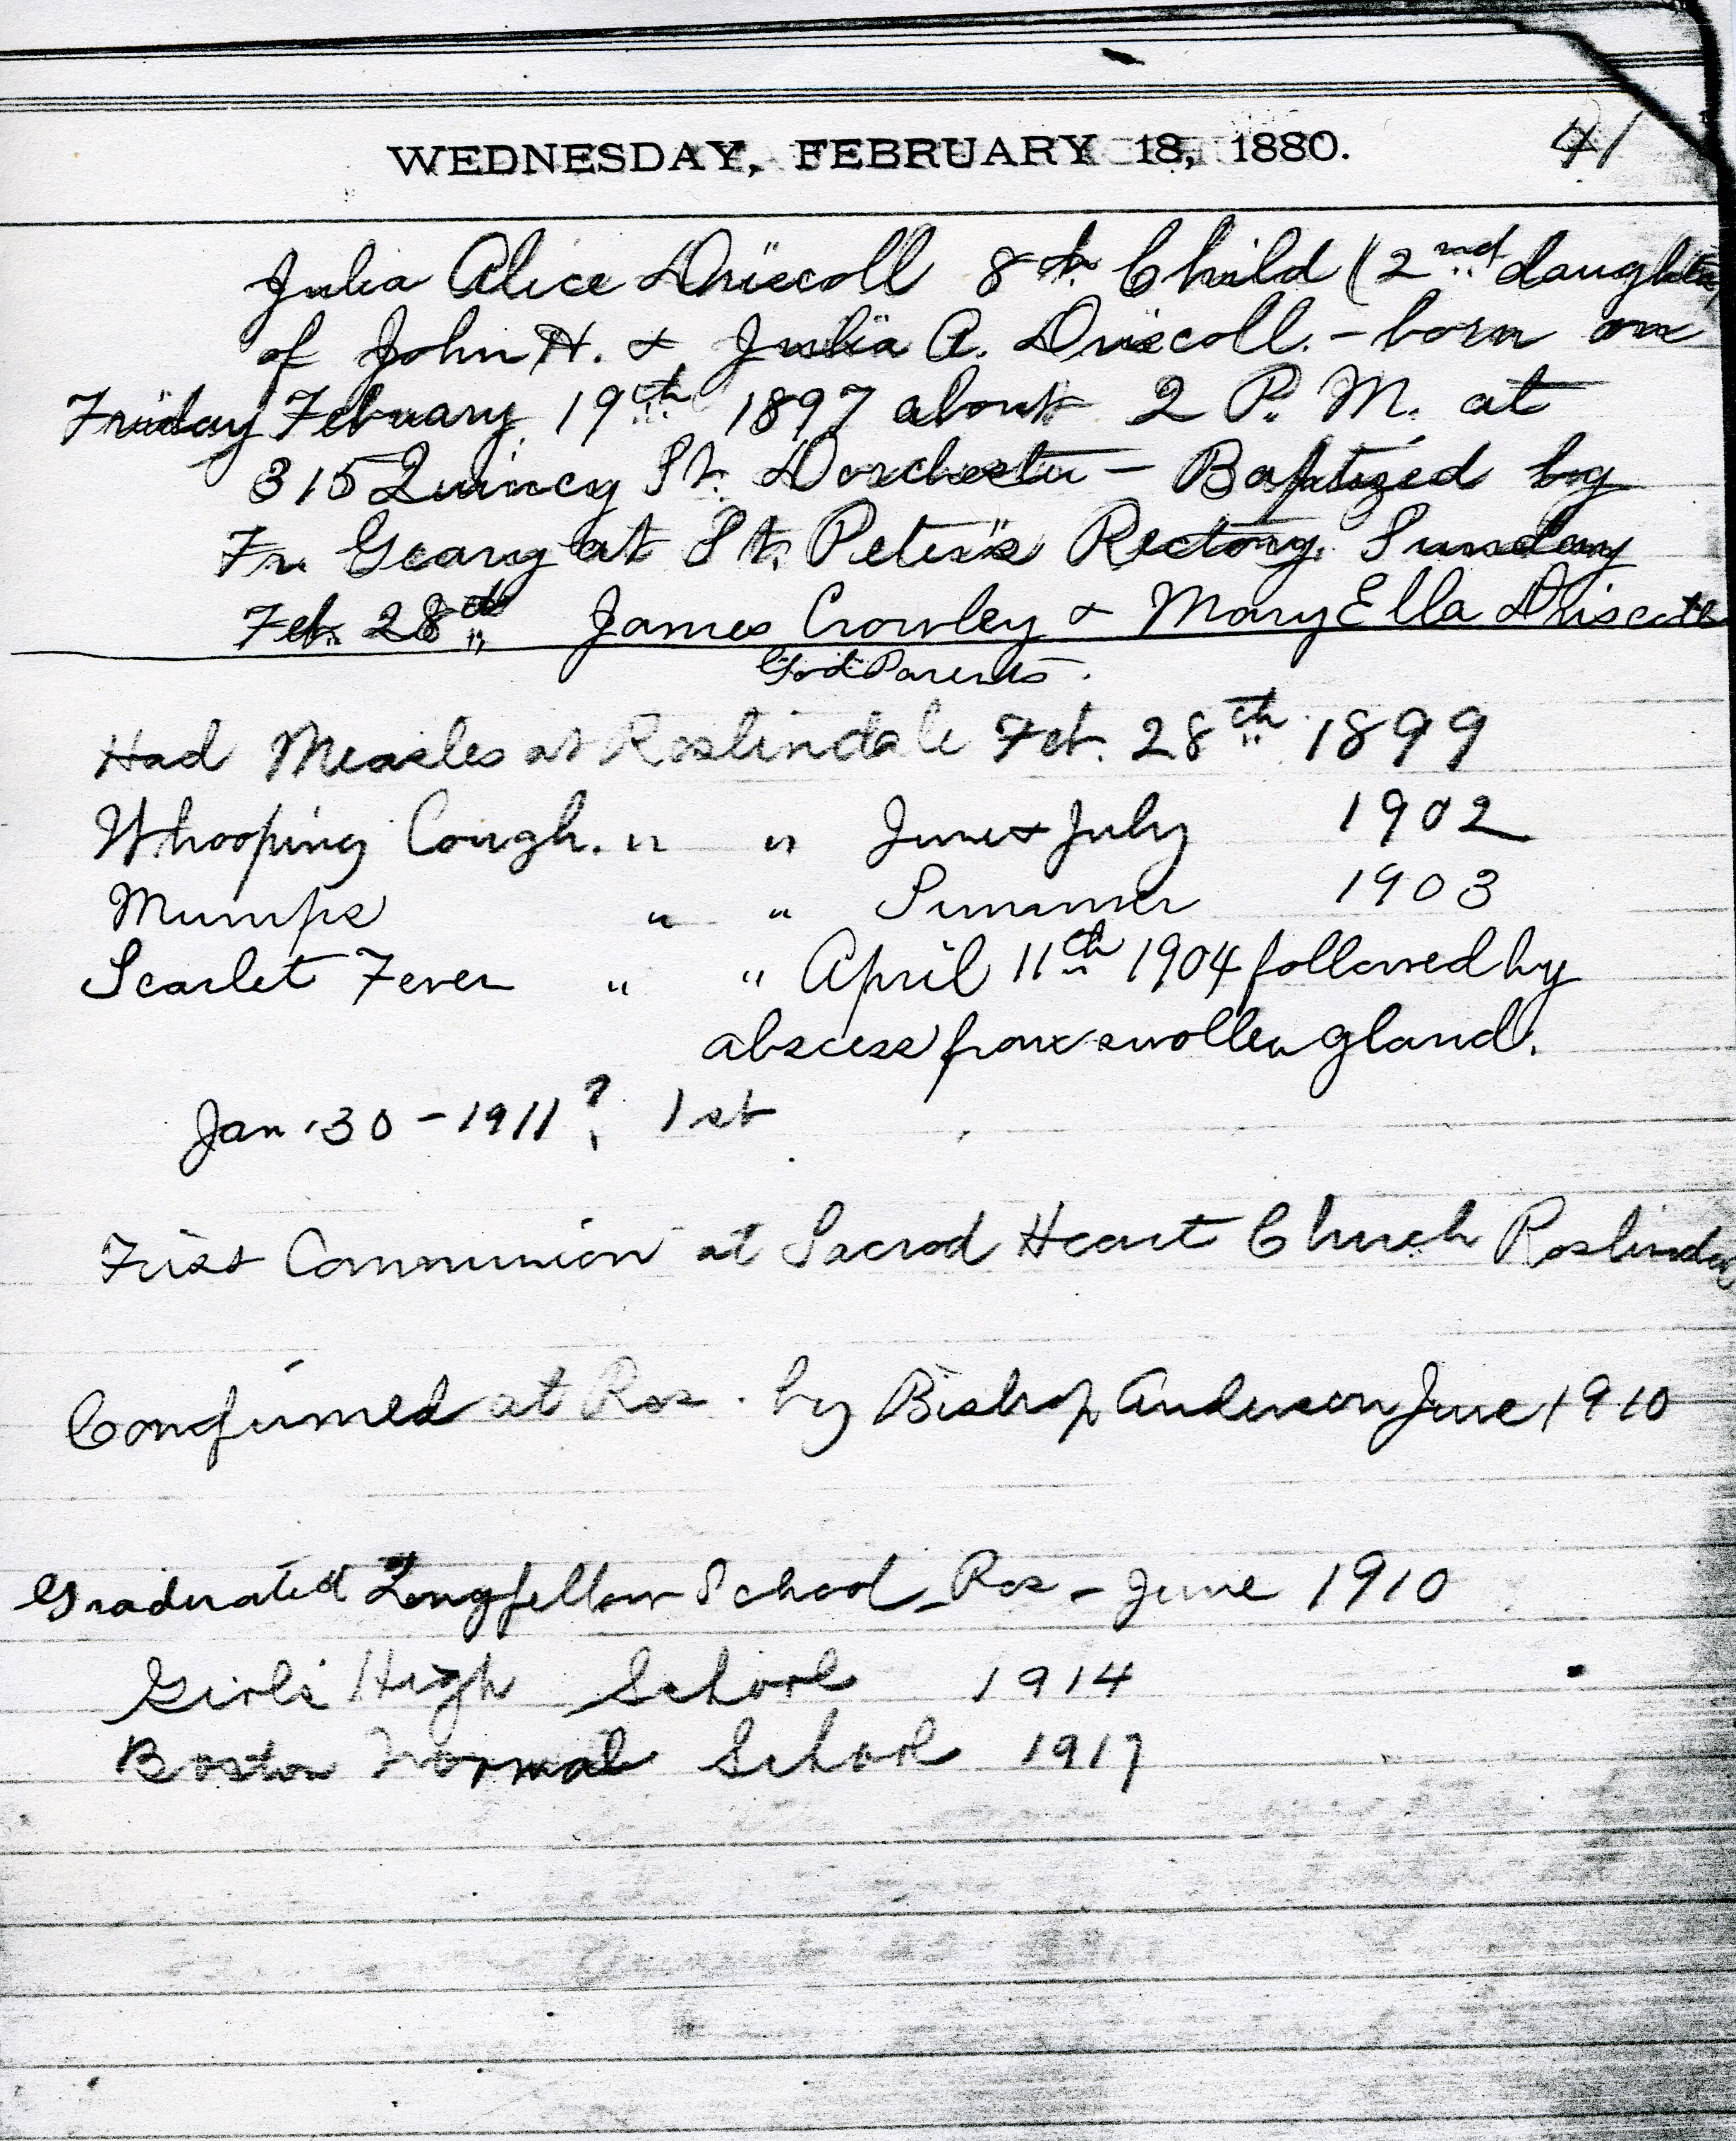 WEDNESDAY, FEBRUARY 18, 1880. 41
Julia Alice Driscoll 8th Child (2nd daughter
of John H. & Julia A. Driscoll. - born on
Friday February 19th 1897 about 2 P. M. at
315 Quincy St. Dorchester - Baptized by
Fr. Geary at St. Peter's Rectory. Sunday
Feb. 28th James Crowley & Mary Ella Driscoll
God Parents.
Had Measles at Roslindale Feb. 28th 1899
Whooping Cough. " " June & July 1902
Mumps " " Summer 1903
Scarlet Fever " " April 11th 1904 followed by
abscess from swollen gland.
Jan. 30 - 1911? 1st
First Communion at Sacred Heart Church Roslindale
Confirmed at Ros. by Bishop Anderson June 1910
Graduated Longfellow School - Ros - June 1910
Girls High School 1914
Boston Normal School 1917